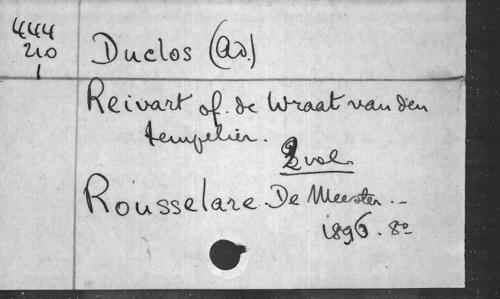 444
210
1
Duclos (Ad.)
Reivart of. de Wraat van den
tempelier.
2 vol.
Rousselare. De Meester. -
1896. 8º